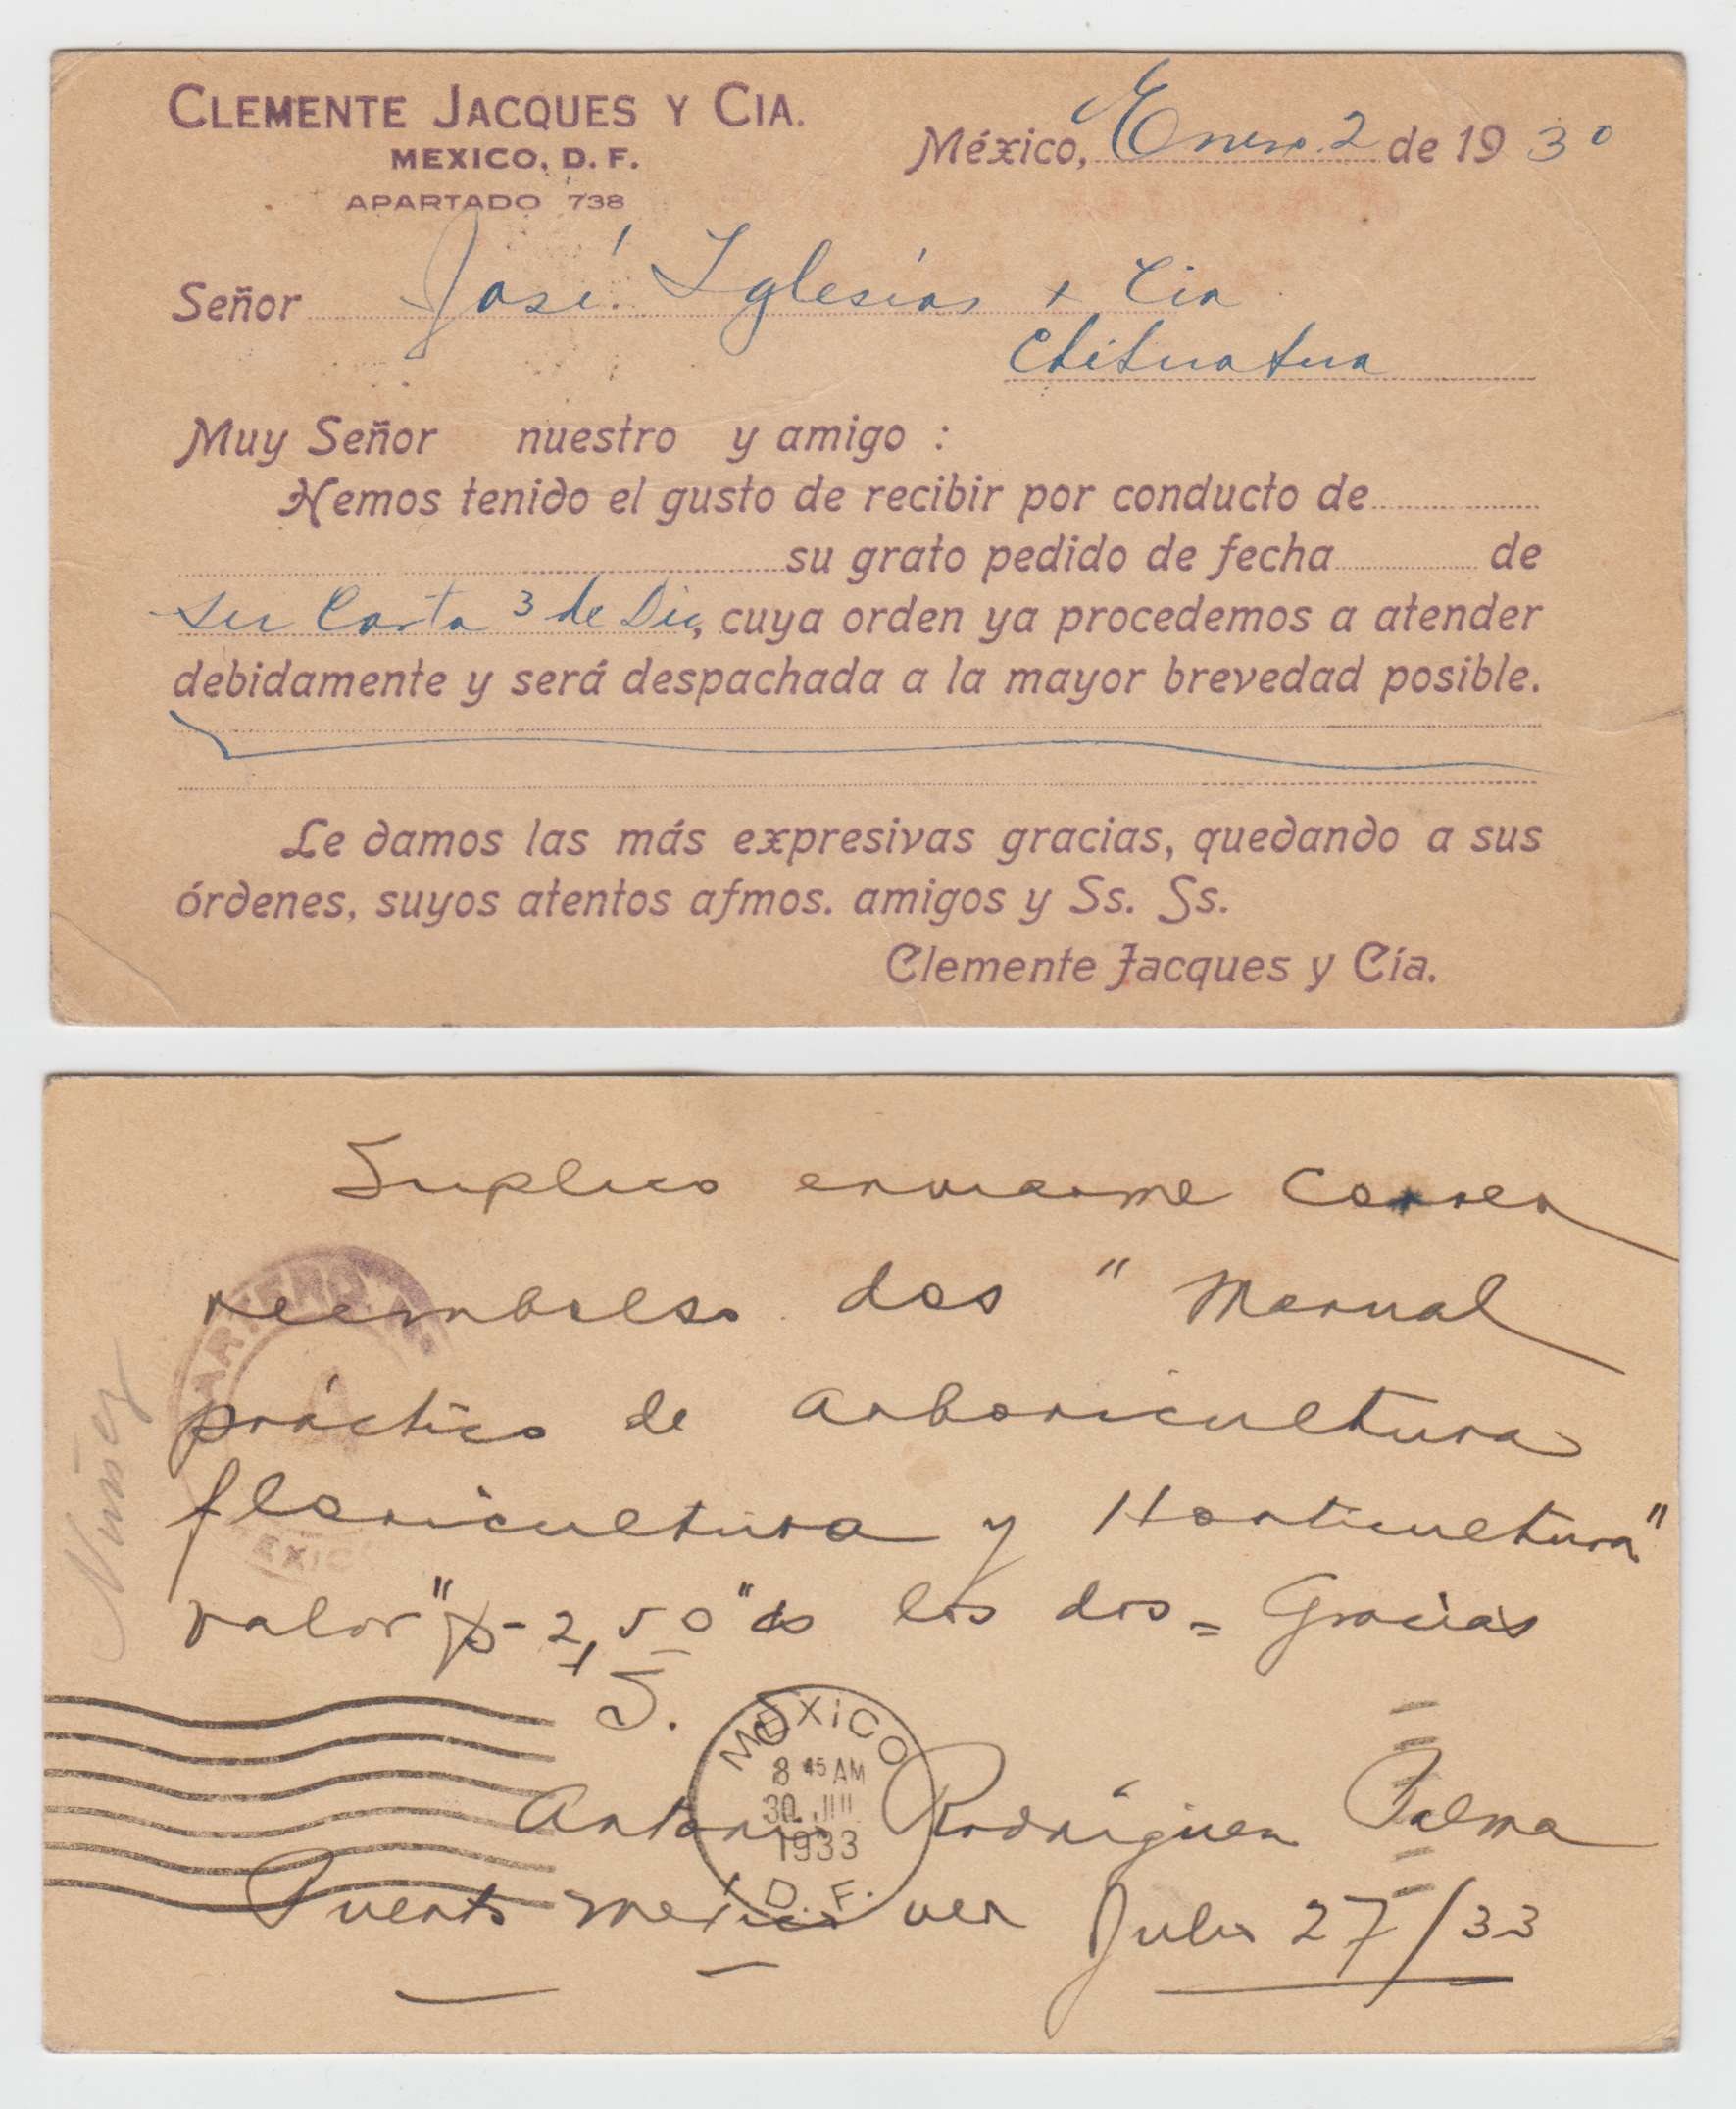 CLEMENTE JACQUES Y CIA.
MEXICO, D. F.
APARTADO 738
México, Enero 2 de 19 30
Señor José Iglesias y Cia
Chihuahua
Muy Señor nuestro y amigo :
Hemos tenido el gusto de recibir por conducto de
su grato pedido de fecha de
su Carta 3 de Dic, cuya orden ya procedemos a atender
debidamente y será despachada a la mayor brevedad posible.
Le damos las más expresivas gracias, quedando a sus
órdenes, suyos atentos afmos. amigos y Ss. Ss.
Clemente Jacques y Cía.
Suplico enviarme Correo
reembolso dos "Manual
práctico de arboricultura
floricultura y Horticultura"
valor "$-2,50" los dos = Gracias
S.
Antonio Rodríguez Palma
Puerto Mexico Ver Julio 27/33
Nuñez
MEXICO
8 45 AM
30 JUL
1933
D. F.